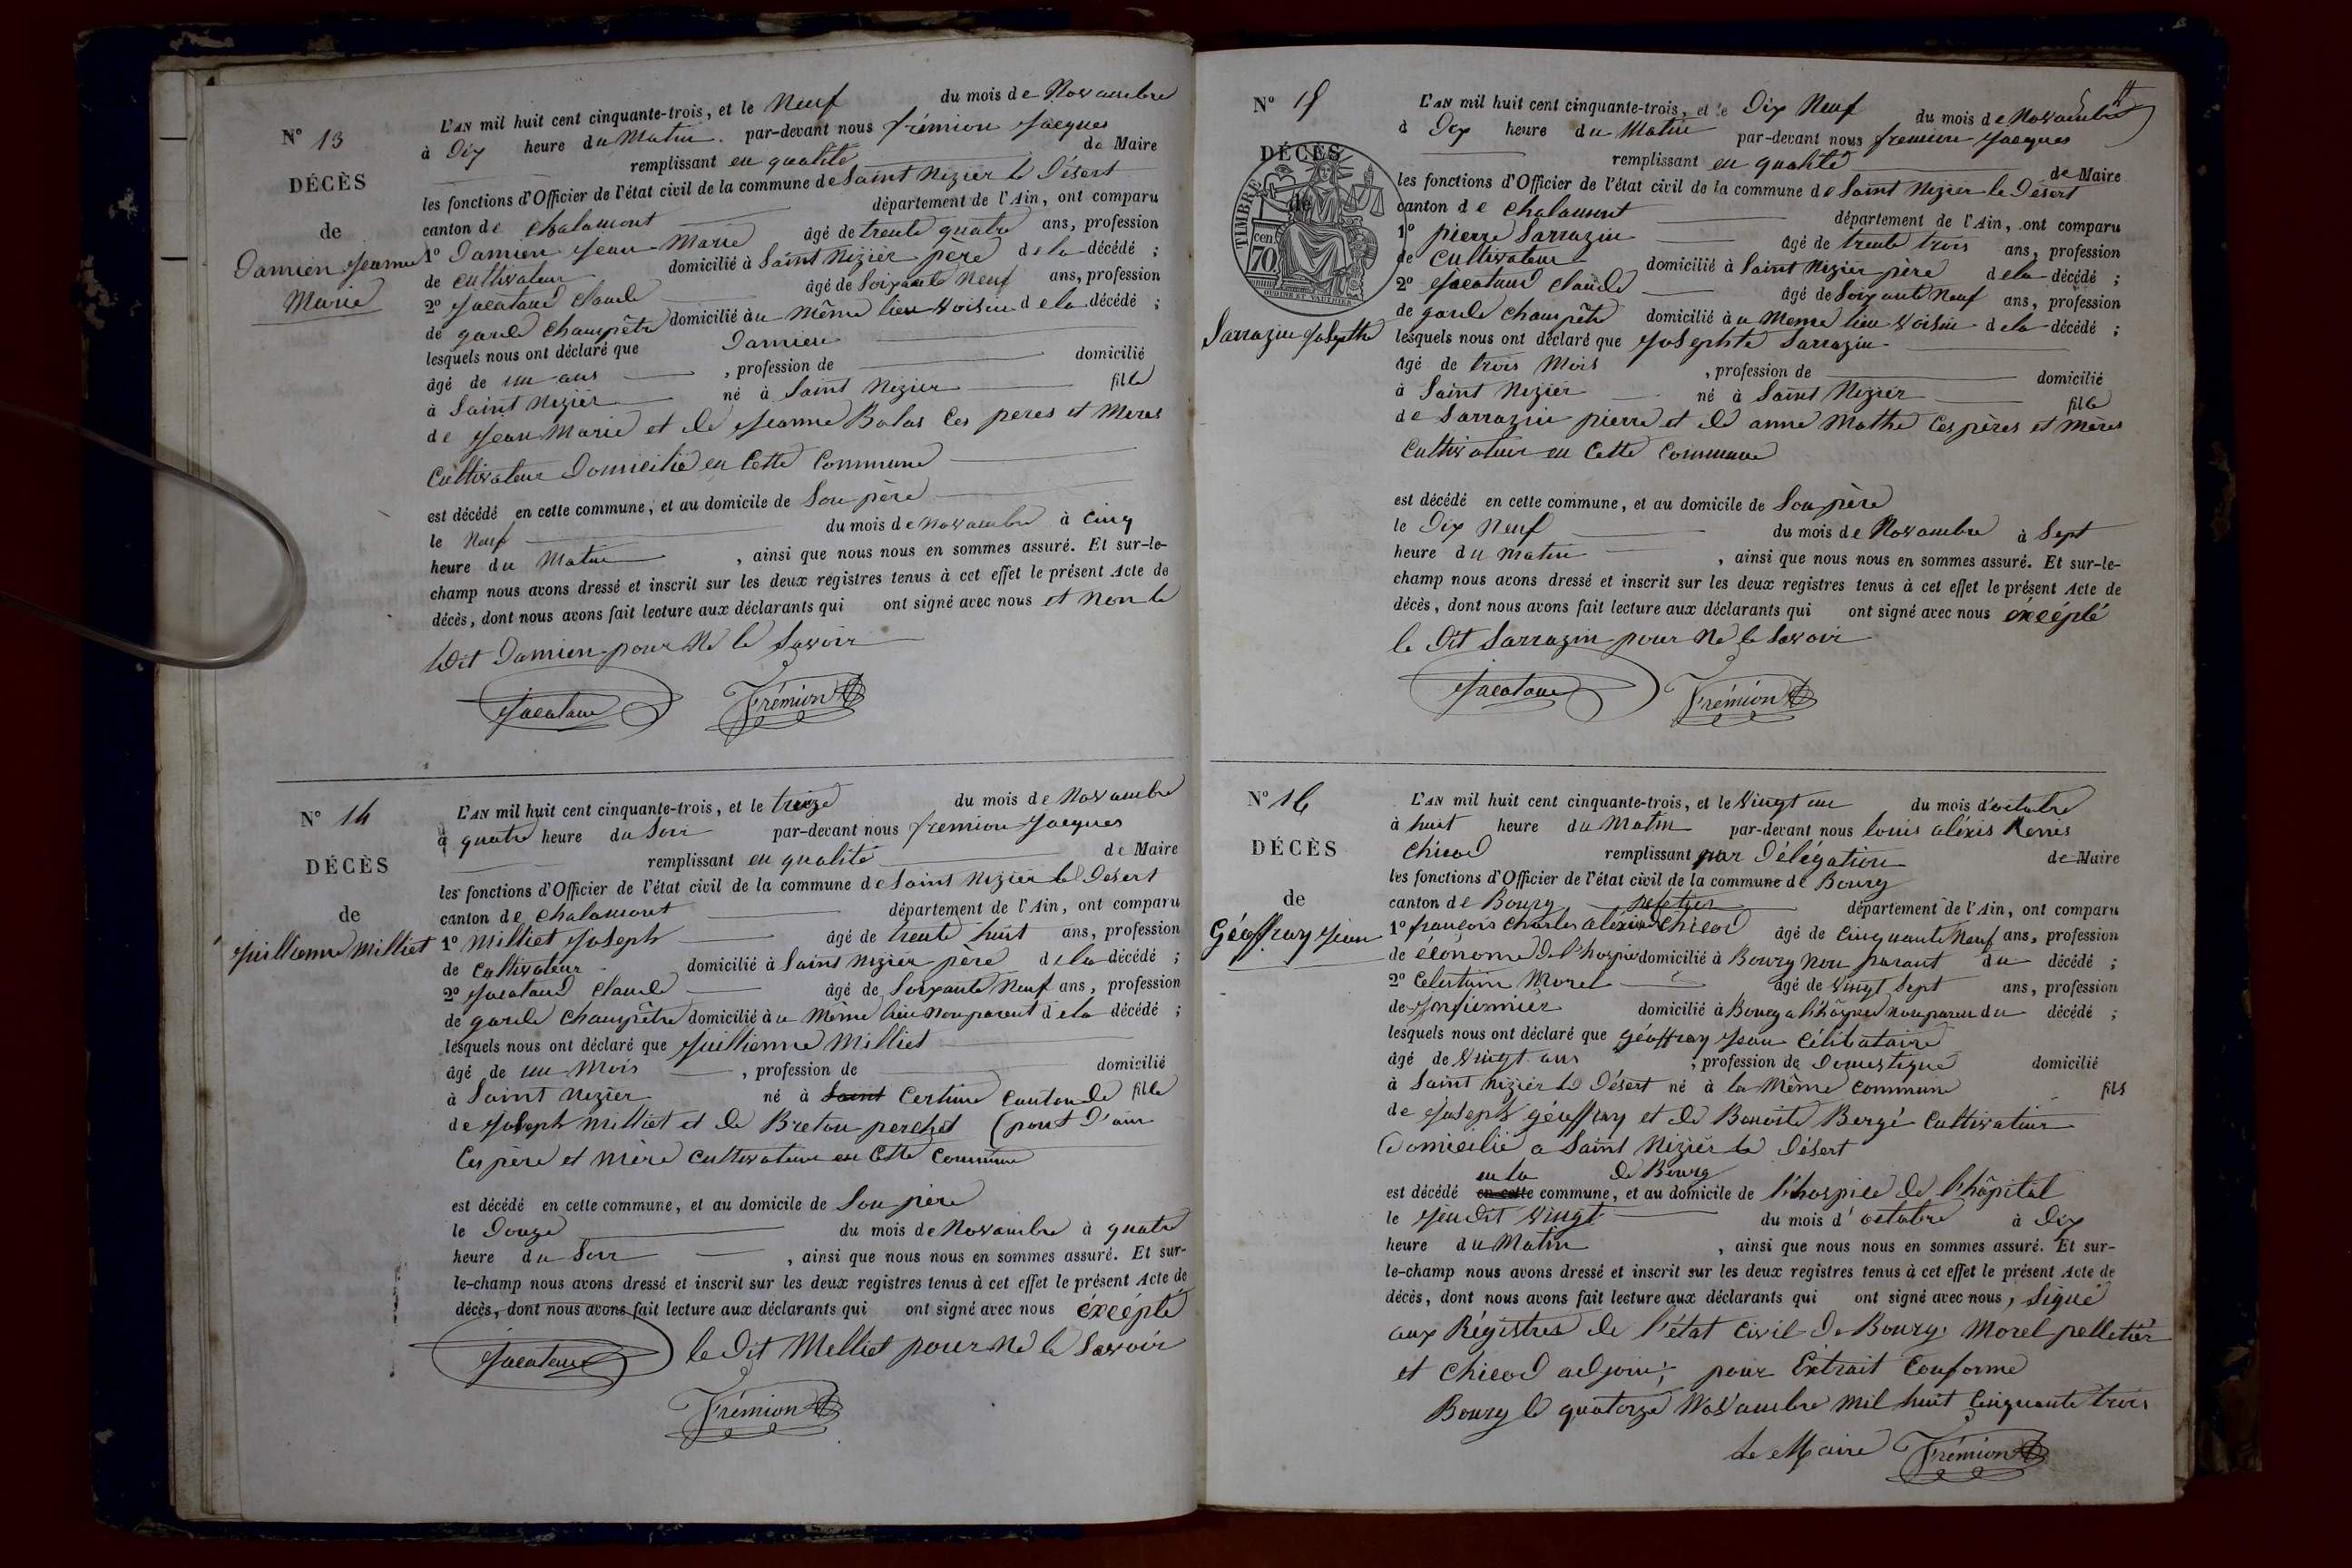 N° 13
DÉCÈS
de
Damien Jeanne
Marie
L'AN mil huit cent cinquante-trois, et le Neuf du mois de Novambre
à Dix heure du Matin par-devant nous frémion Jacques
remplissant en qualité de Maire
les fonctions d'Officier de l'état civil de la commune de Saint Nizier le Désert
canton de Chalamont département de l'Ain, ont comparu
1° Damien Jean Marie âgé de trente quatre ans, profession
de Cultivateur domicilié à Saint Nizier père de la décédé ;
2° Jacataud Claude âgé de Soixante Neuf ans, profession
de garde Champêtre domicilié au Même lieu Voisin de la décédé ;
lesquels nous ont déclaré que Damien
âgé de un ans , profession de domicilié
à Saint Nizier né à Saint Nizier fille
de Jean Marie et de Jeanne Balas Ces peres et Meres
Cultivateur Domicilié en Cette Commune
est décédé en cette commune, et au domicile de Son père
le Neuf du mois de Novambre à Cinq
heure du Matin , ainsi que nous nous en sommes assuré. Et sur-le-
champ nous avons dressé et inscrit sur les deux registres tenus à cet effet le présent Acte de
décès, dont nous avons fait lecture aux déclarants qui ont signé avec nous et Non le
ledit Damien pour Ne le Savoir
Jacataud Frémion
N° 14
DÉCÈS
de
Juillienne Milliet
L'AN mil huit cent cinquante-trois, et le treize du mois de Novambre
à quatre heure du Soir par-devant nous fremion Jacques
remplissant en qualité de Maire
les fonctions d'Officier de l'état civil de la commune de Saint Nizier le Désert
canton de Chalamont département de l'Ain, ont comparu
1° Milliet Joseph âgé de trente huit ans, profession
de Cultivateur domicilié à Saint Nizier père de la décédé ;
2° Jacataud Claude âgé de Soixante Neuf ans, profession
de garde Champêtre domicilié au Même lieu Non parent de la décédé ;
lesquels nous ont déclaré que Juillienne Milliet
âgé de un Mois , profession de domicilié
à Saint Nizier né à Saint Certine Canton de fille
de Joseph Milliet et de Breton perchet (pont d'ain
Ces père et Mère Cultivateur en Cette Commune
est décédé en cette commune, et au domicile de Son père
le Douze du mois de Novambre à quatre
heure du Soir , ainsi que nous nous en sommes assuré. Et sur-
le-champ nous avons dressé et inscrit sur les deux registres tenus à cet effet le présent Acte de
décès, dont nous avons fait lecture aux déclarants qui ont signé avec nous éxcépté
le Dit Melliet pour Ne le Savoir
Jacataud
Frémion
N° 15
DÉCÈS
de
TIMBRE
cen. 70
Sarrazin Josephte
L'AN mil huit cent cinquante-trois, et le Dix Neuf du mois de Novambre
à Dix heure du Matin par-devant nous fremion Jacques
remplissant en qualité de Maire
les fonctions d'Officier de l'état civil de la commune de Saint Nizier le Désert
canton de Chalamont département de l'Ain, ont comparu
1° pierre Sarrazin âgé de trente trois ans, profession
de Cultivateur domicilié à Saint Nizier père de la décédé ;
2° Jacataud Claude âgé de Soixante Neuf ans, profession
de garde Champêtre domicilié au Meme lieu Voisin de la décédé ;
lesquels nous ont déclaré que Josephte Sarrazin
âgé de trois Mois , profession de domicilié
à Saint Nizier né à Saint Nizier fille
de Sarrazin pierre et de anne Mathe Ces pères et Mères
Cultivateur en Cette Commune
est décédé en cette commune, et au domicile de Son père
le Dix Neuf du mois de Novambre à Sept
heure du Matin , ainsi que nous nous en sommes assuré. Et sur-le-
champ nous avons dressé et inscrit sur les deux registres tenus à cet effet le présent Acte de
décès, dont nous avons fait lecture aux déclarants qui ont signé avec nous éxcépté
le Dit Sarrazin pour Ne le Savoir
Jacataud Frémion
N° 16
DÉCÈS
de
Géoffray Jean
L'AN mil huit cent cinquante-trois, et le Vingt un du mois d'octobre
à huit heure du Matin par-devant nous louis aléxis Renis
Chicod remplissant par Délégation de Maire
les fonctions d'Officier de l'état civil de la commune de Bourg
canton de Bourg département de l'Ain, ont comparu
1° françois Charles aléxis Chicod âgé de Cinquante Neuf ans, profession
de économe de l'hospice domicilié à Bourg Non parant du décédé ;
2° Celestain Morel âgé de Vingt Sept ans, profession
de Infirmier domicilié à Bourg a l'hôspice non paren du décédé ;
lesquels nous ont déclaré que géoffray Jean Célibataire
âgé de Vingt ans , profession de Domestique domicilié
à Saint Nizier le Désert né à la Même Commune fils
de Joseph géoffray et de Benoite Bergé Cultivateur
Domicilié a Saint Nizier le Désert
en la de Bourg
est décédé en cette commune, et au domicile de l'hospice de l'hôpital
le Jeudit Vingt du mois d'octobre à Dix
heure du Matin , ainsi que nous nous en sommes assuré. Et sur-
le-champ nous avons dressé et inscrit sur les deux registres tenus à cet effet le présent Acte de
décès, dont nous avons fait lecture aux déclarants qui ont signé avec nous, Signé
aux Régistres de l'état Civil de Bourg. Morel pelletier
et Chicod adjoint; pour Extrait Conforme
Bourg le quatorze Novambre Mil huit Cinquante trois
Le Maire Frémion